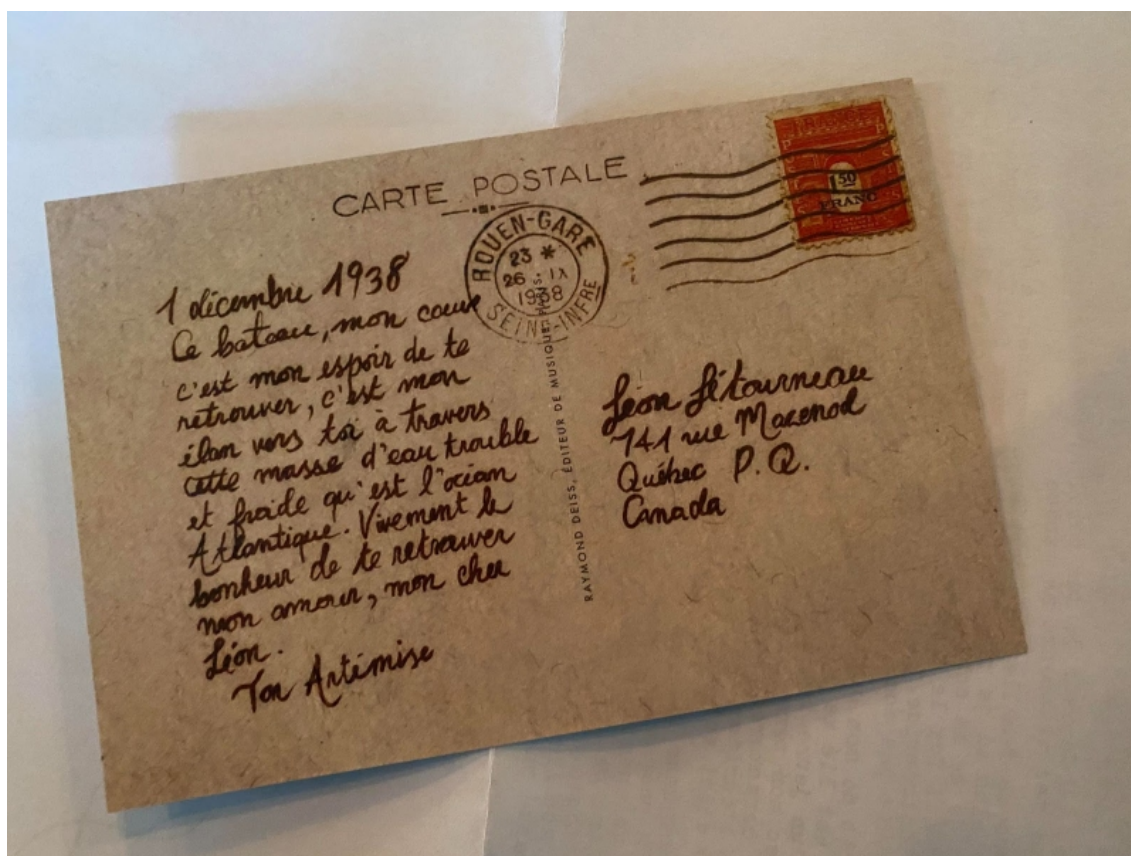 CARTE POSTALE
ROUEN-GARE
23 *
26 IX
1938
SEINE-INFRE
1 50
FRANC
1 décembre 1938
Ce bateau, mon cœur
c'est mon espoir de te
retrouver, c'est mon
élan vers toi à travers
cette masse d'eau trouble
et froide qu'est l'océan
Atlantique. Vivement le
bonheur de te retrouver
mon amour, mon cher
Léon.
Ton Artémise
RAYMOND DEISS, ÉDITEUR DE MUSIQUE, PARIS.
Léon Létourneau
741 rue Mazenod
Québec P.Q.
Canada